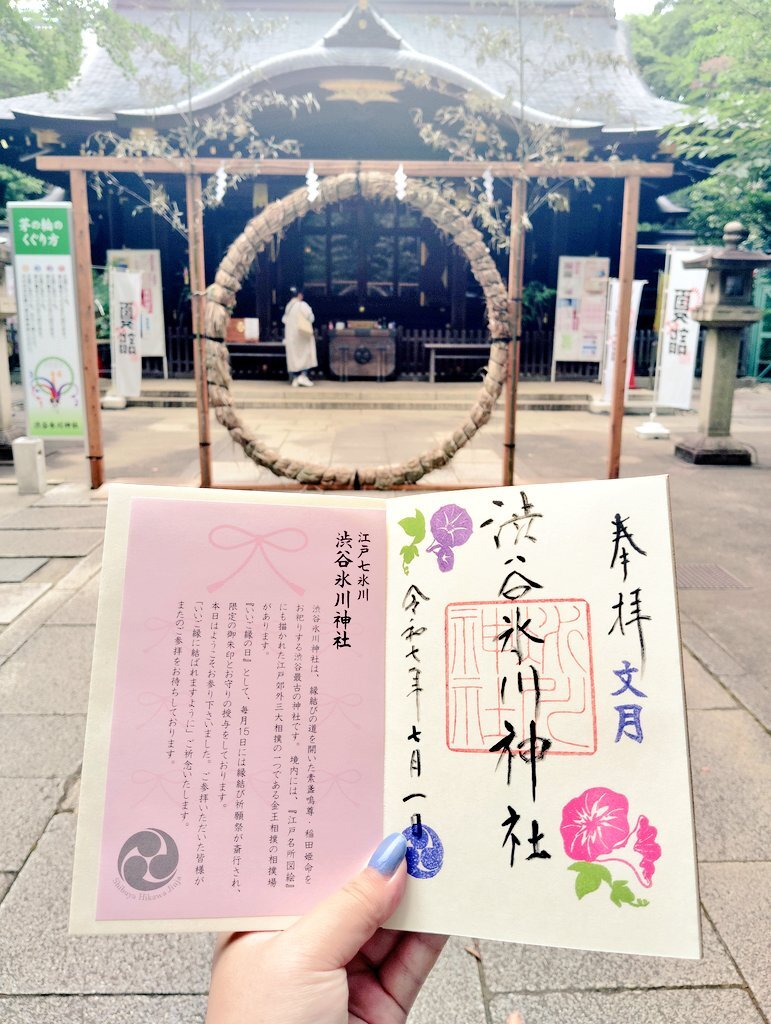 茅の輪の
くぐり方
渋谷氷川神社
夏詣
夏詣
奉拝
文月
渋谷氷川神社
氷川
神社
令和七年七月一日
江戸七氷川
渋谷氷川神社
渋谷氷川神社は、縁結びの道を開いた素盞嗚尊・稲田姫命を
お祀りする渋谷最古の神社です。境内には、『江戸名所図絵』
にも描かれた江戸郊外三大相撲の一つである金王相撲の相撲場
があります。
『いいご縁の日』として、毎月15日には縁結び祈願祭が斎行され、
限定の御朱印とお守りの授与をしております。
本日はようこそお参り下さいました。ご参拝いただいた皆様が
「いいご縁に結ばれますように」ご祈念いたします。
またのご参拝をお待ちしております。
Shibuya Hikawa Jinja